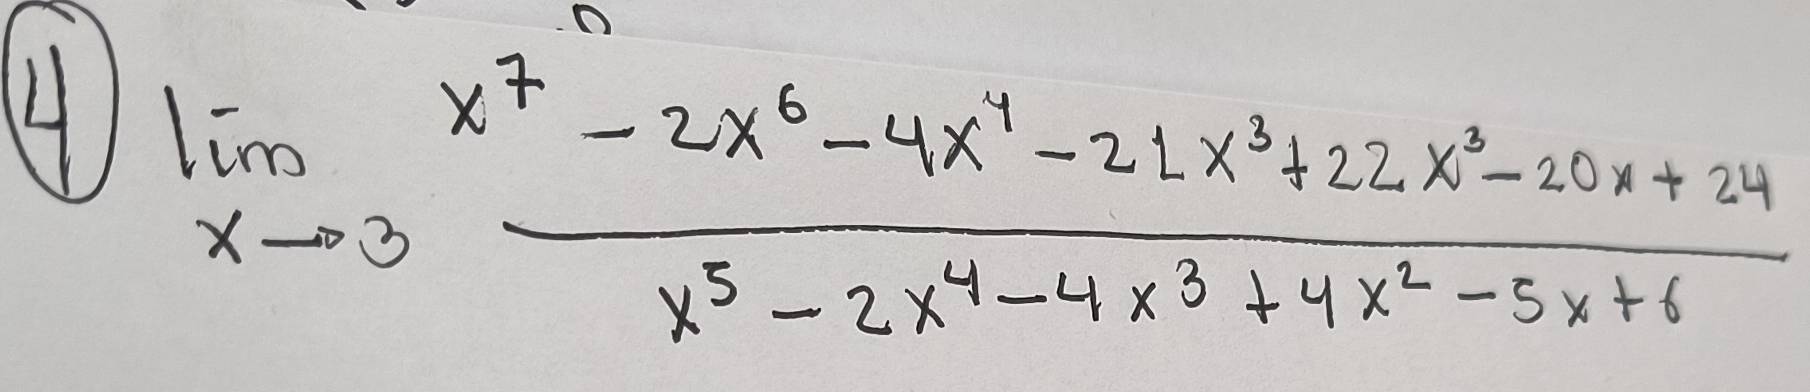 ④ lim x→3 (x⁷ - 2x⁶ - 4x⁴ - 21x³ + 22x³ - 20x + 24) / (x⁵ - 2x⁴ - 4x³ + 4x² - 5x + 6)